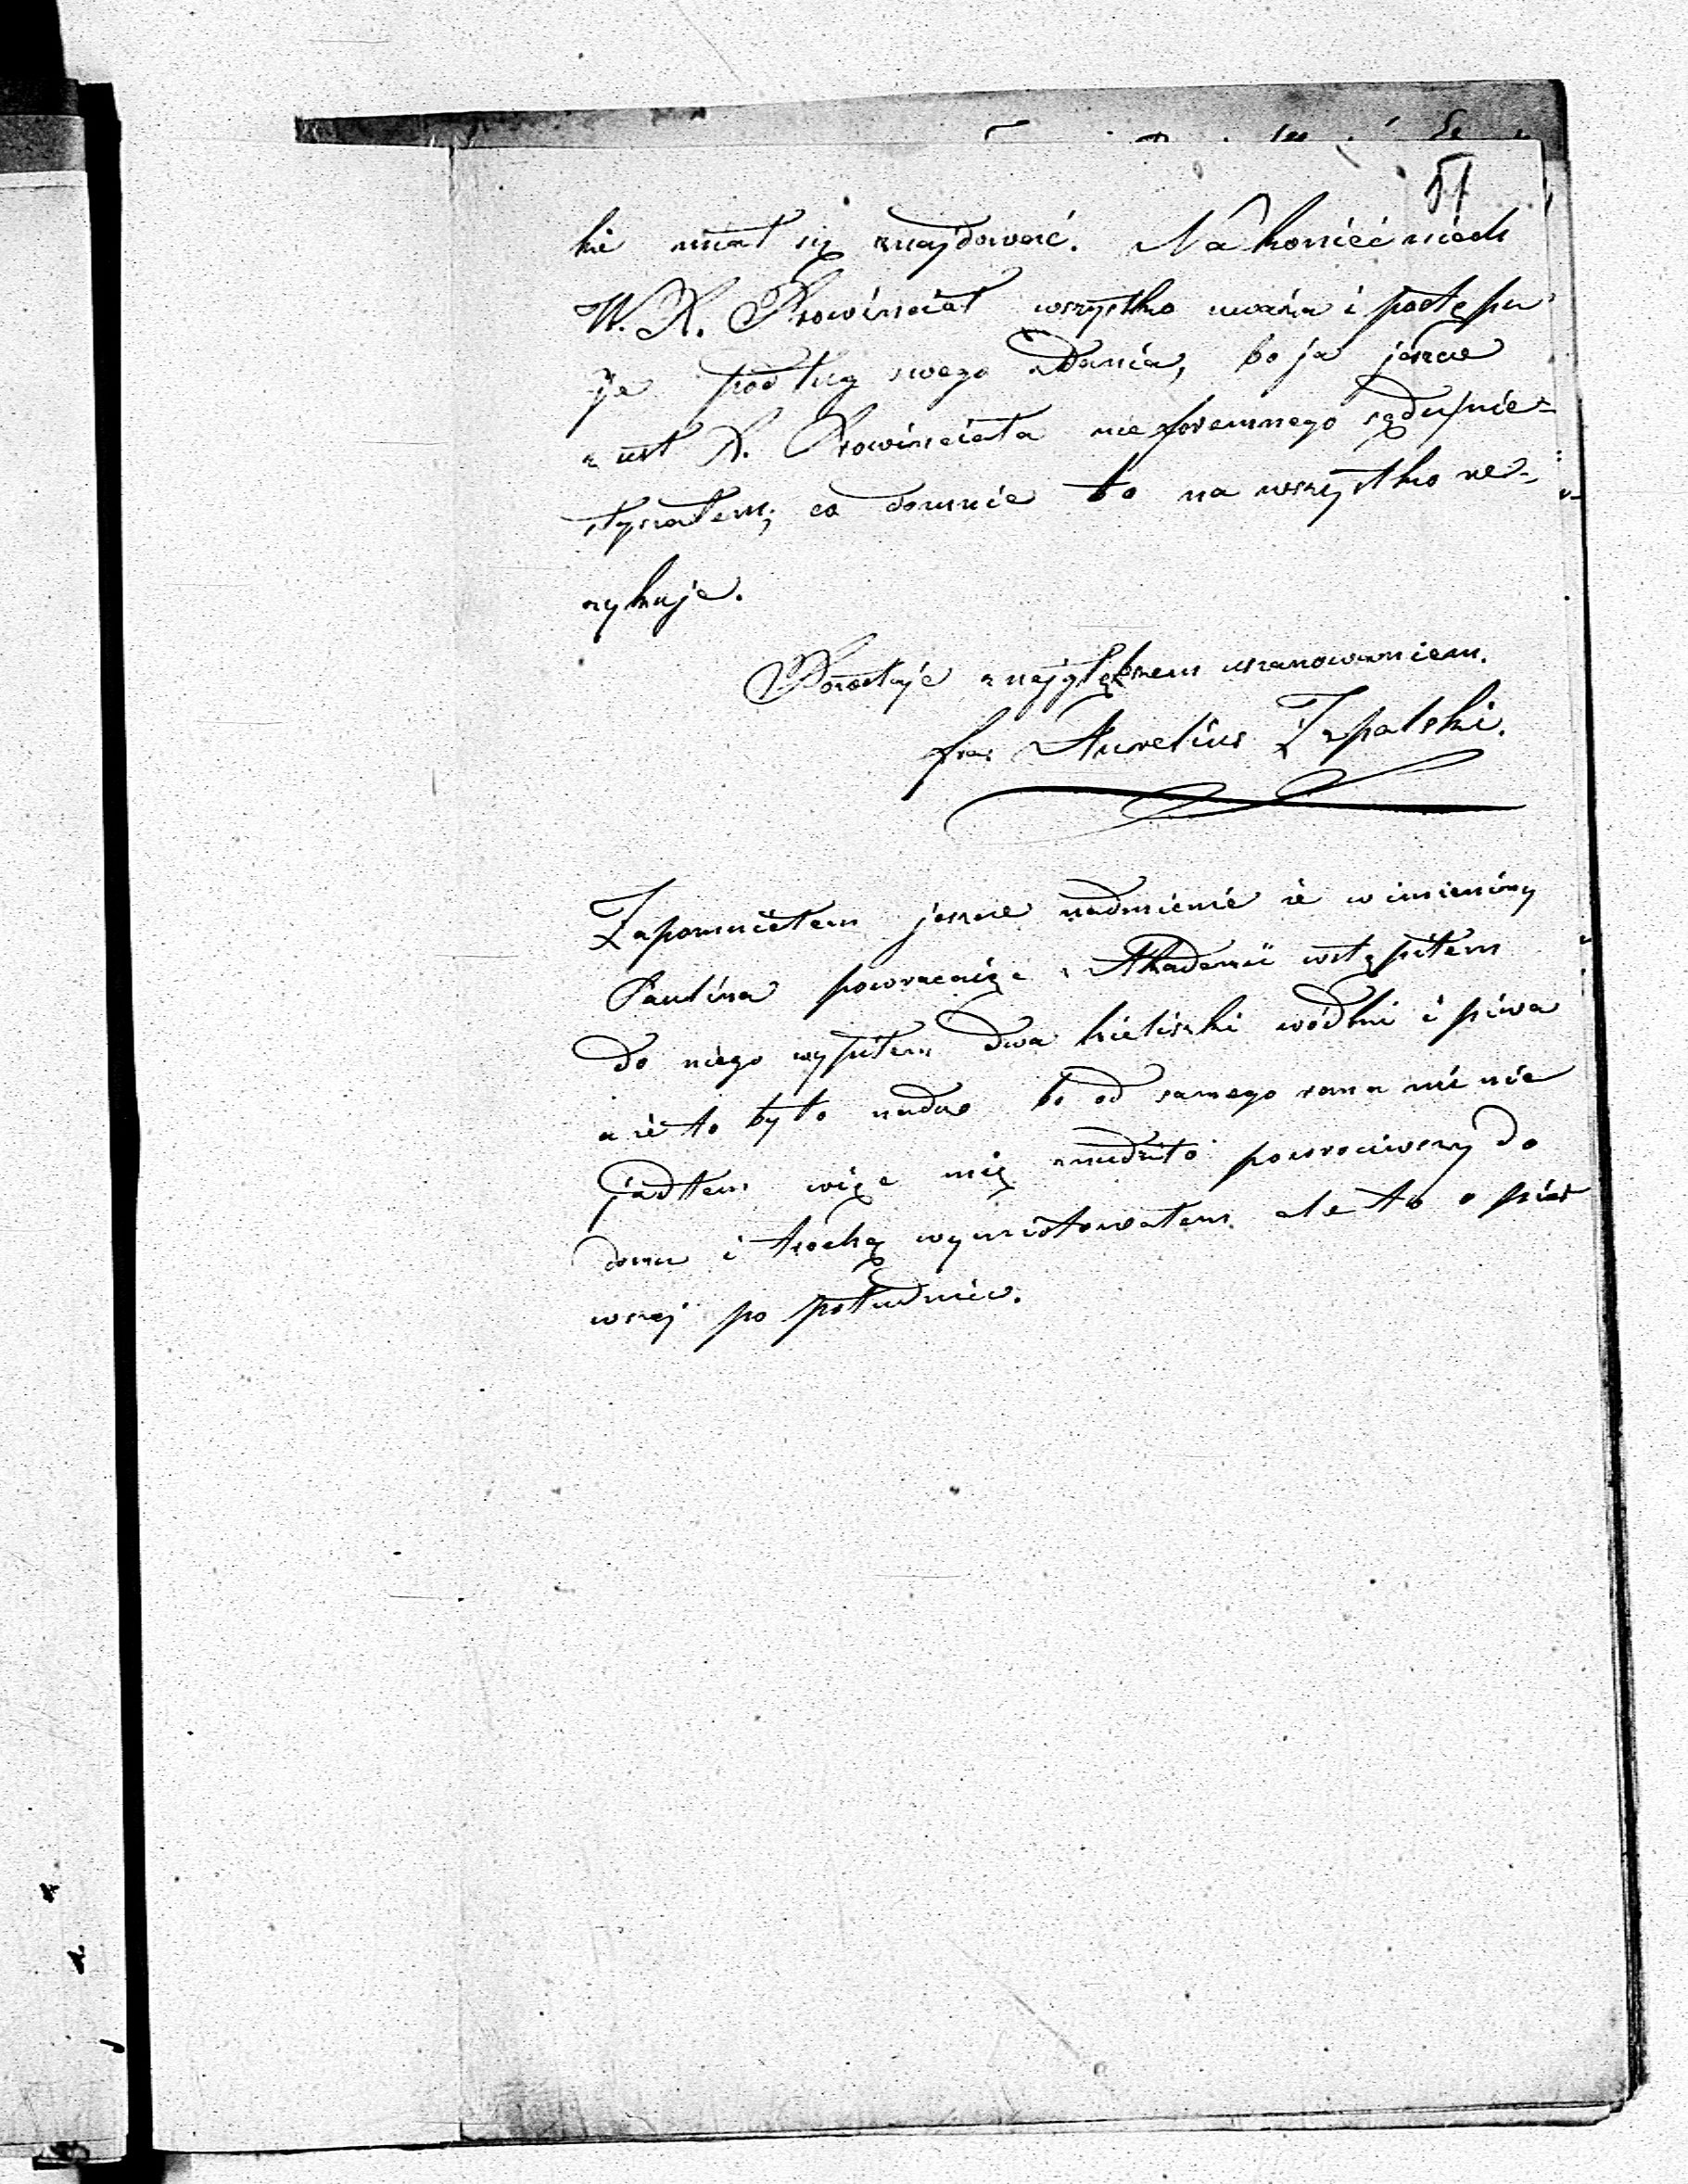 51
kie miał się znajdować. Na koniec niech
W. X. Prowinciał wszystko uważa i postępu
je podług swego zdania, bo ja jeszcze
z ust X. Prowinciała nieforemnego sądu nie=
słyszałem; co do mnie to na wszystko re=
zykuję.
Pozostaję z najgłębszem uszanowaniem.
fra. Aurelius Zapalski.
Zapomniełem jeszcze nadmienić że w imieniny
Paulina powracając z Akademii wstąpiłem
do niego wypiłem dwa kieliszki wódki i piwa
a że to było nudno bo od samego rana nic nie
jadłem więc mię znudziło powrociwszy do
domu i trochę wymiotowałem ale to o pier
wszej po południu.